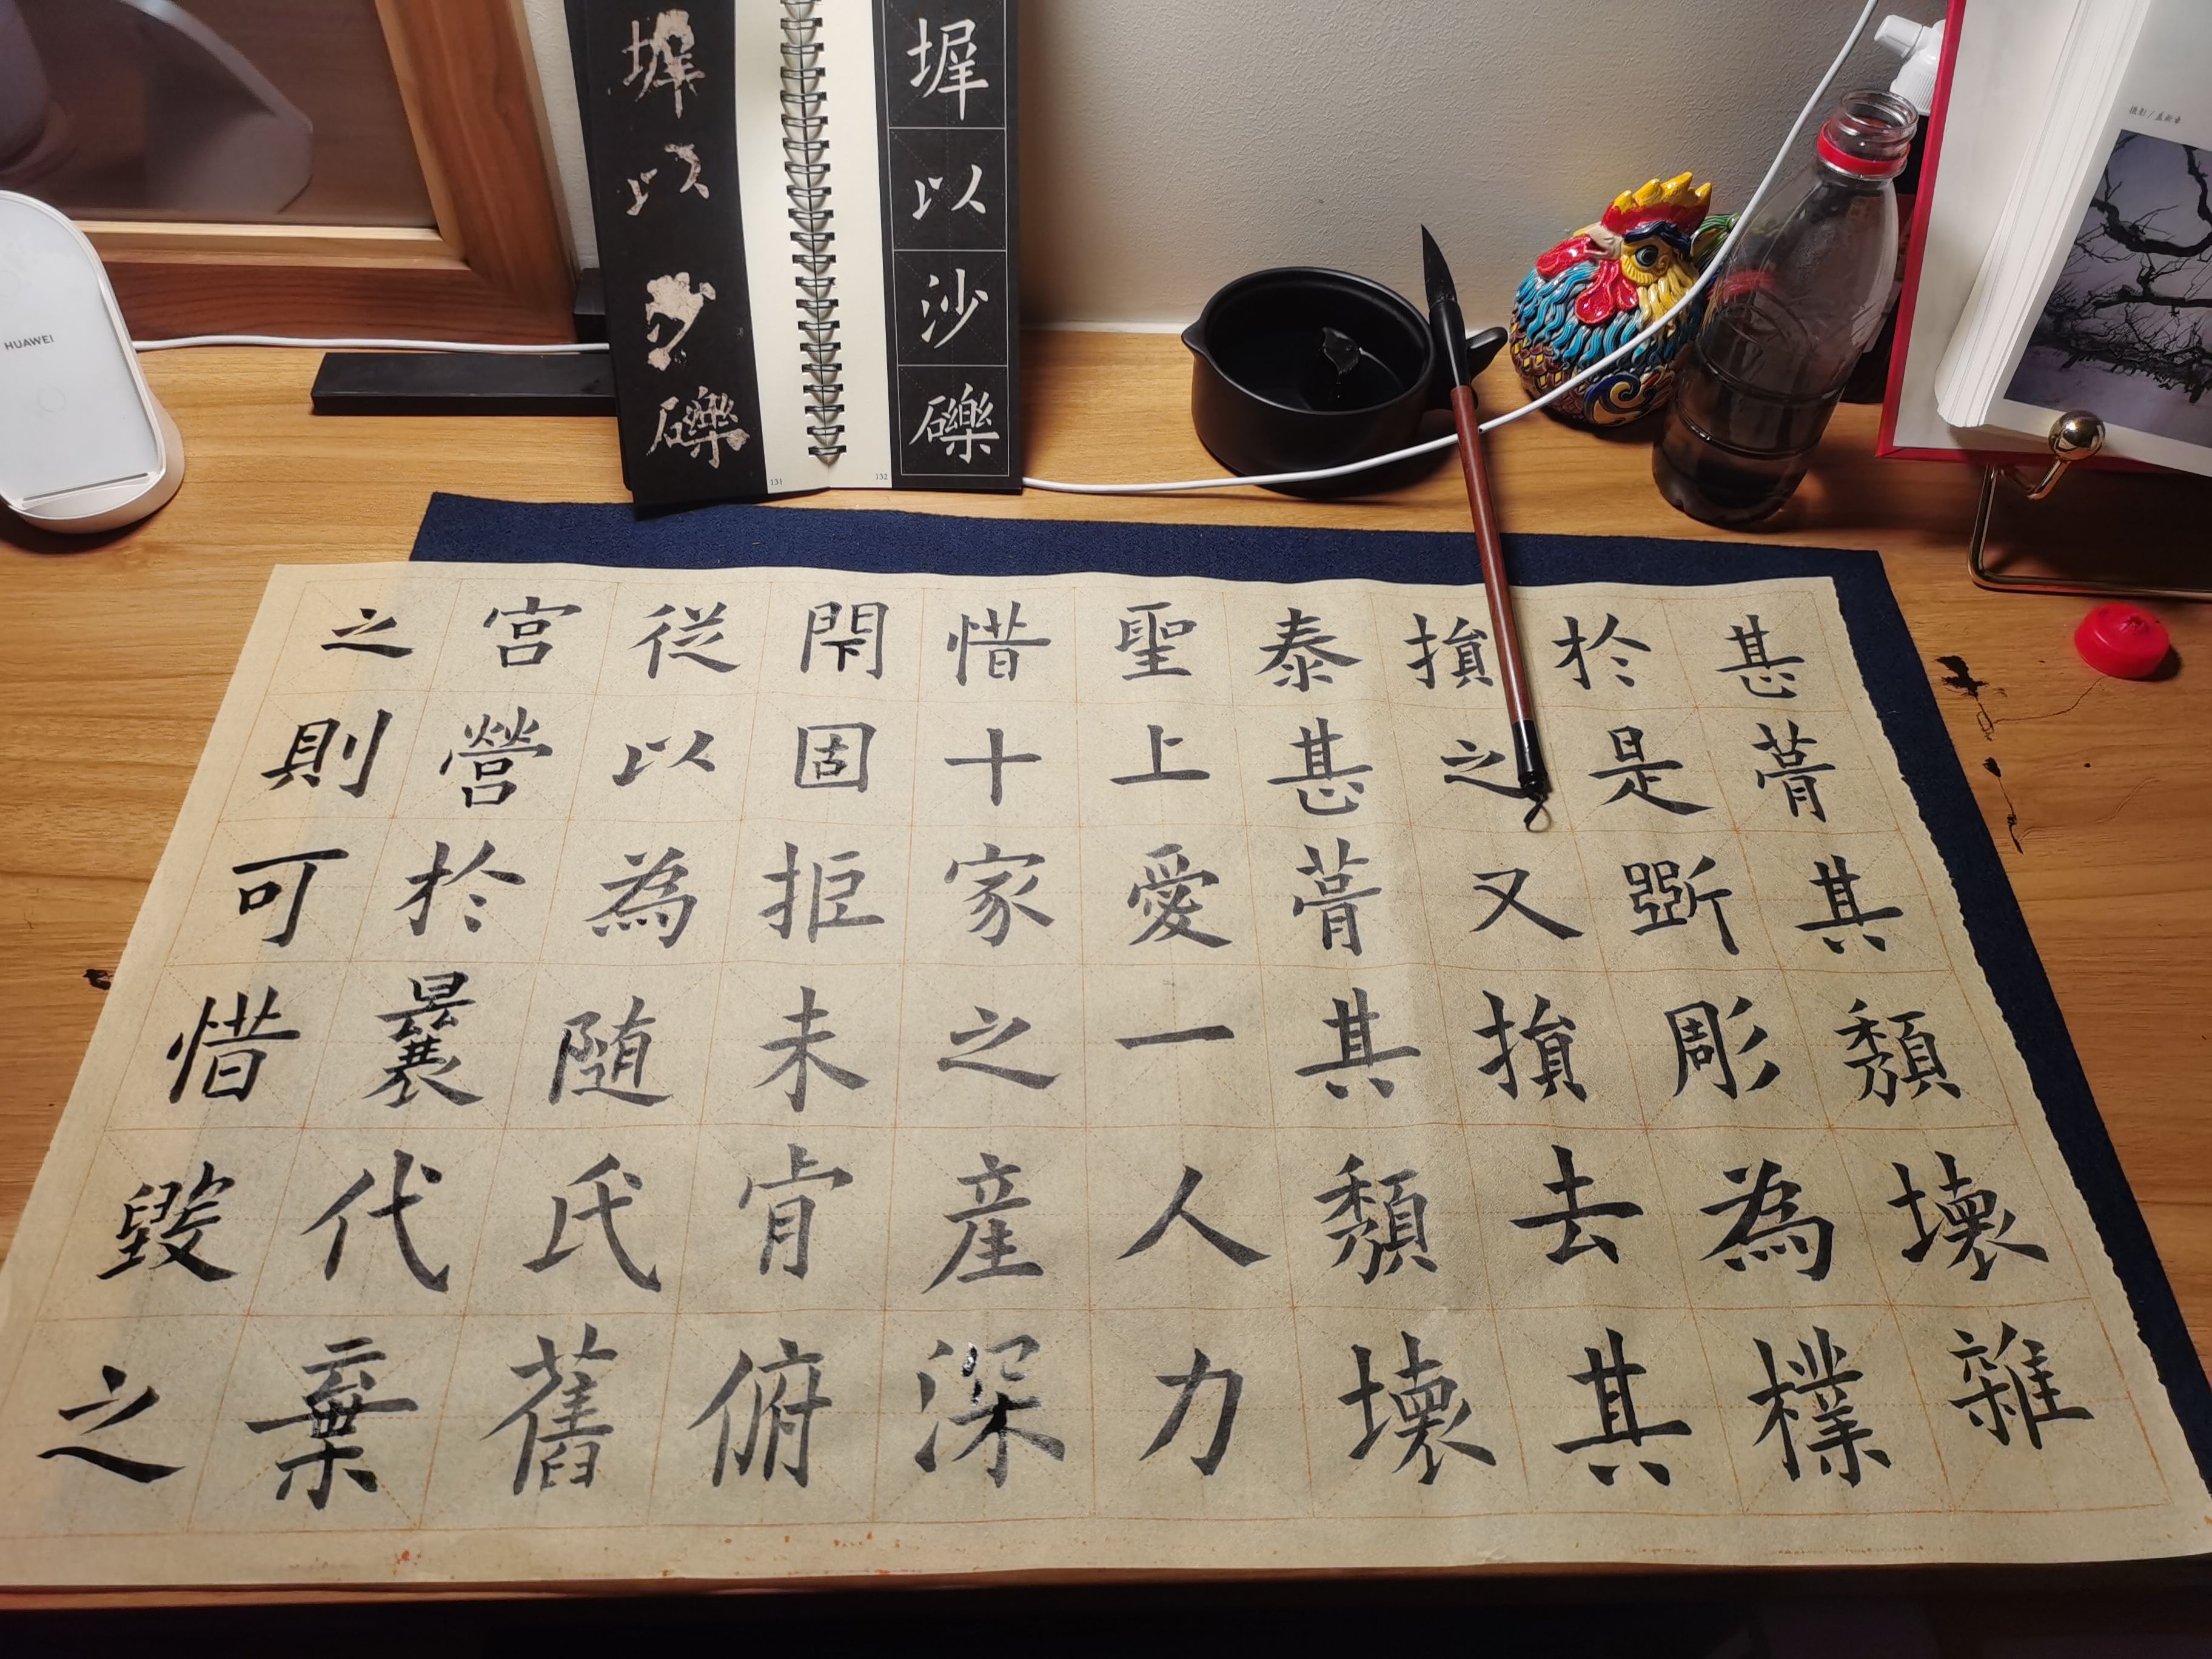 甚葺其頹壞雜
於是斲彫為樸
損之又損去其
泰甚葺其頹壞
聖上愛一人力
惜十家之産深
閇固拒未肯俯
從以為随氏舊
宮營於曩代棄
之則可惜毀之
墀以沙礫
132
墀以沙礫
131
HUAWEI